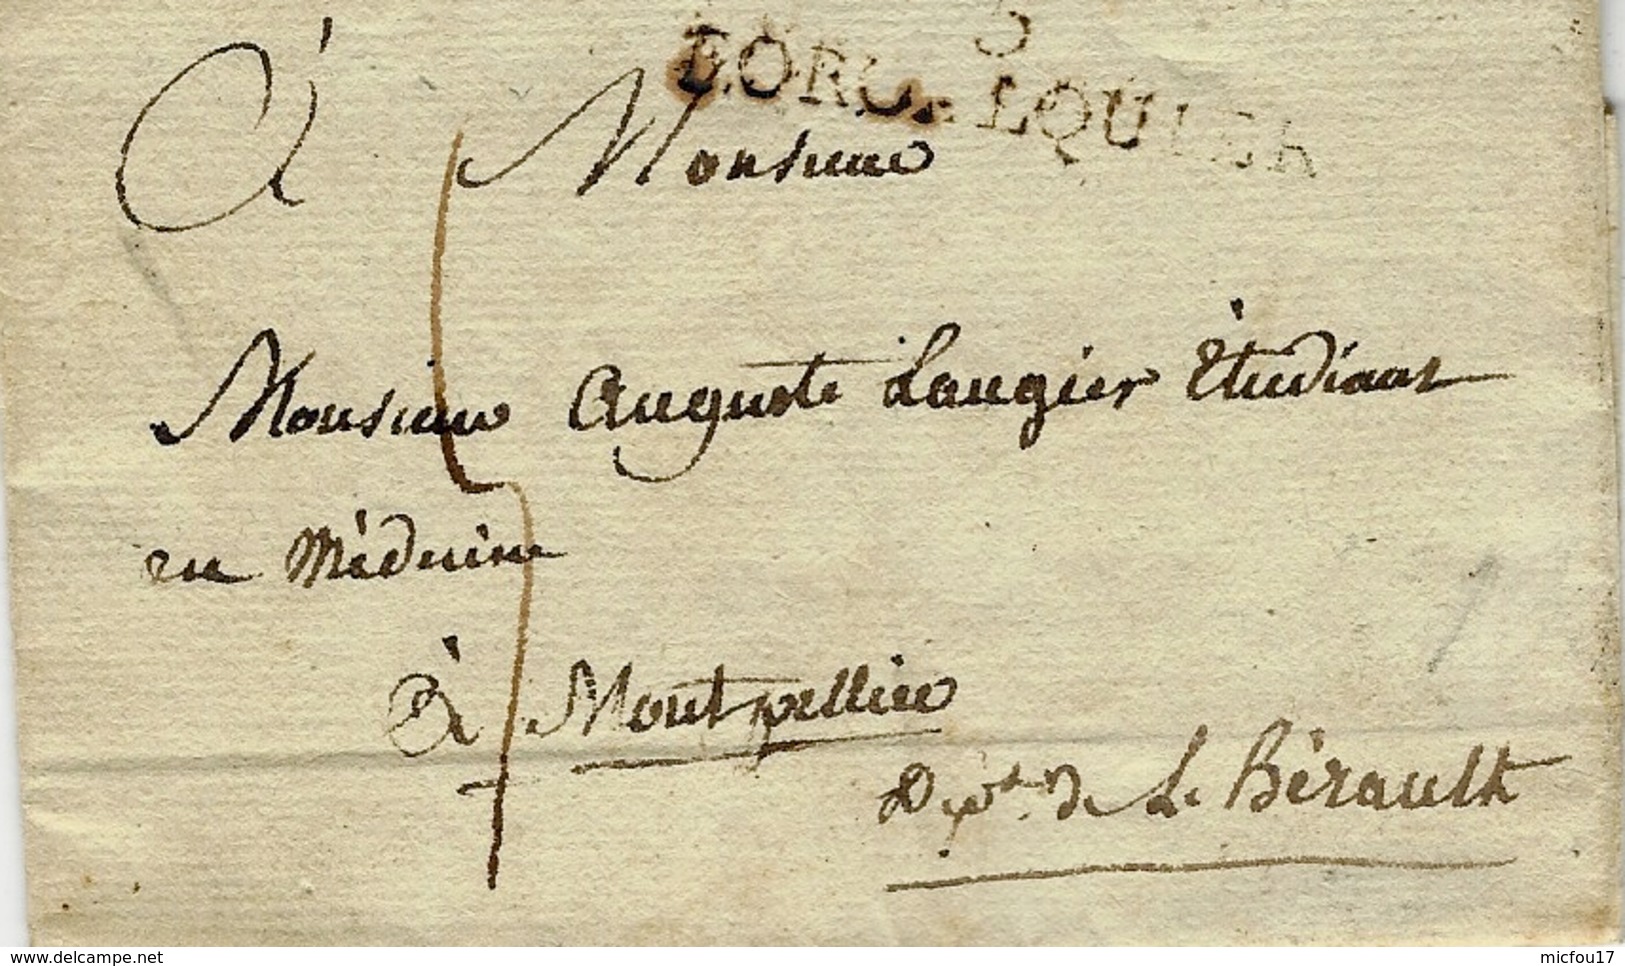 5
FORCALQUIER
À Monsieur
Monsieur Auguste Laugier Étudiant
en Médecine
À Montpellier
Dept. de L. Hérault
delcampe.net
micfou17